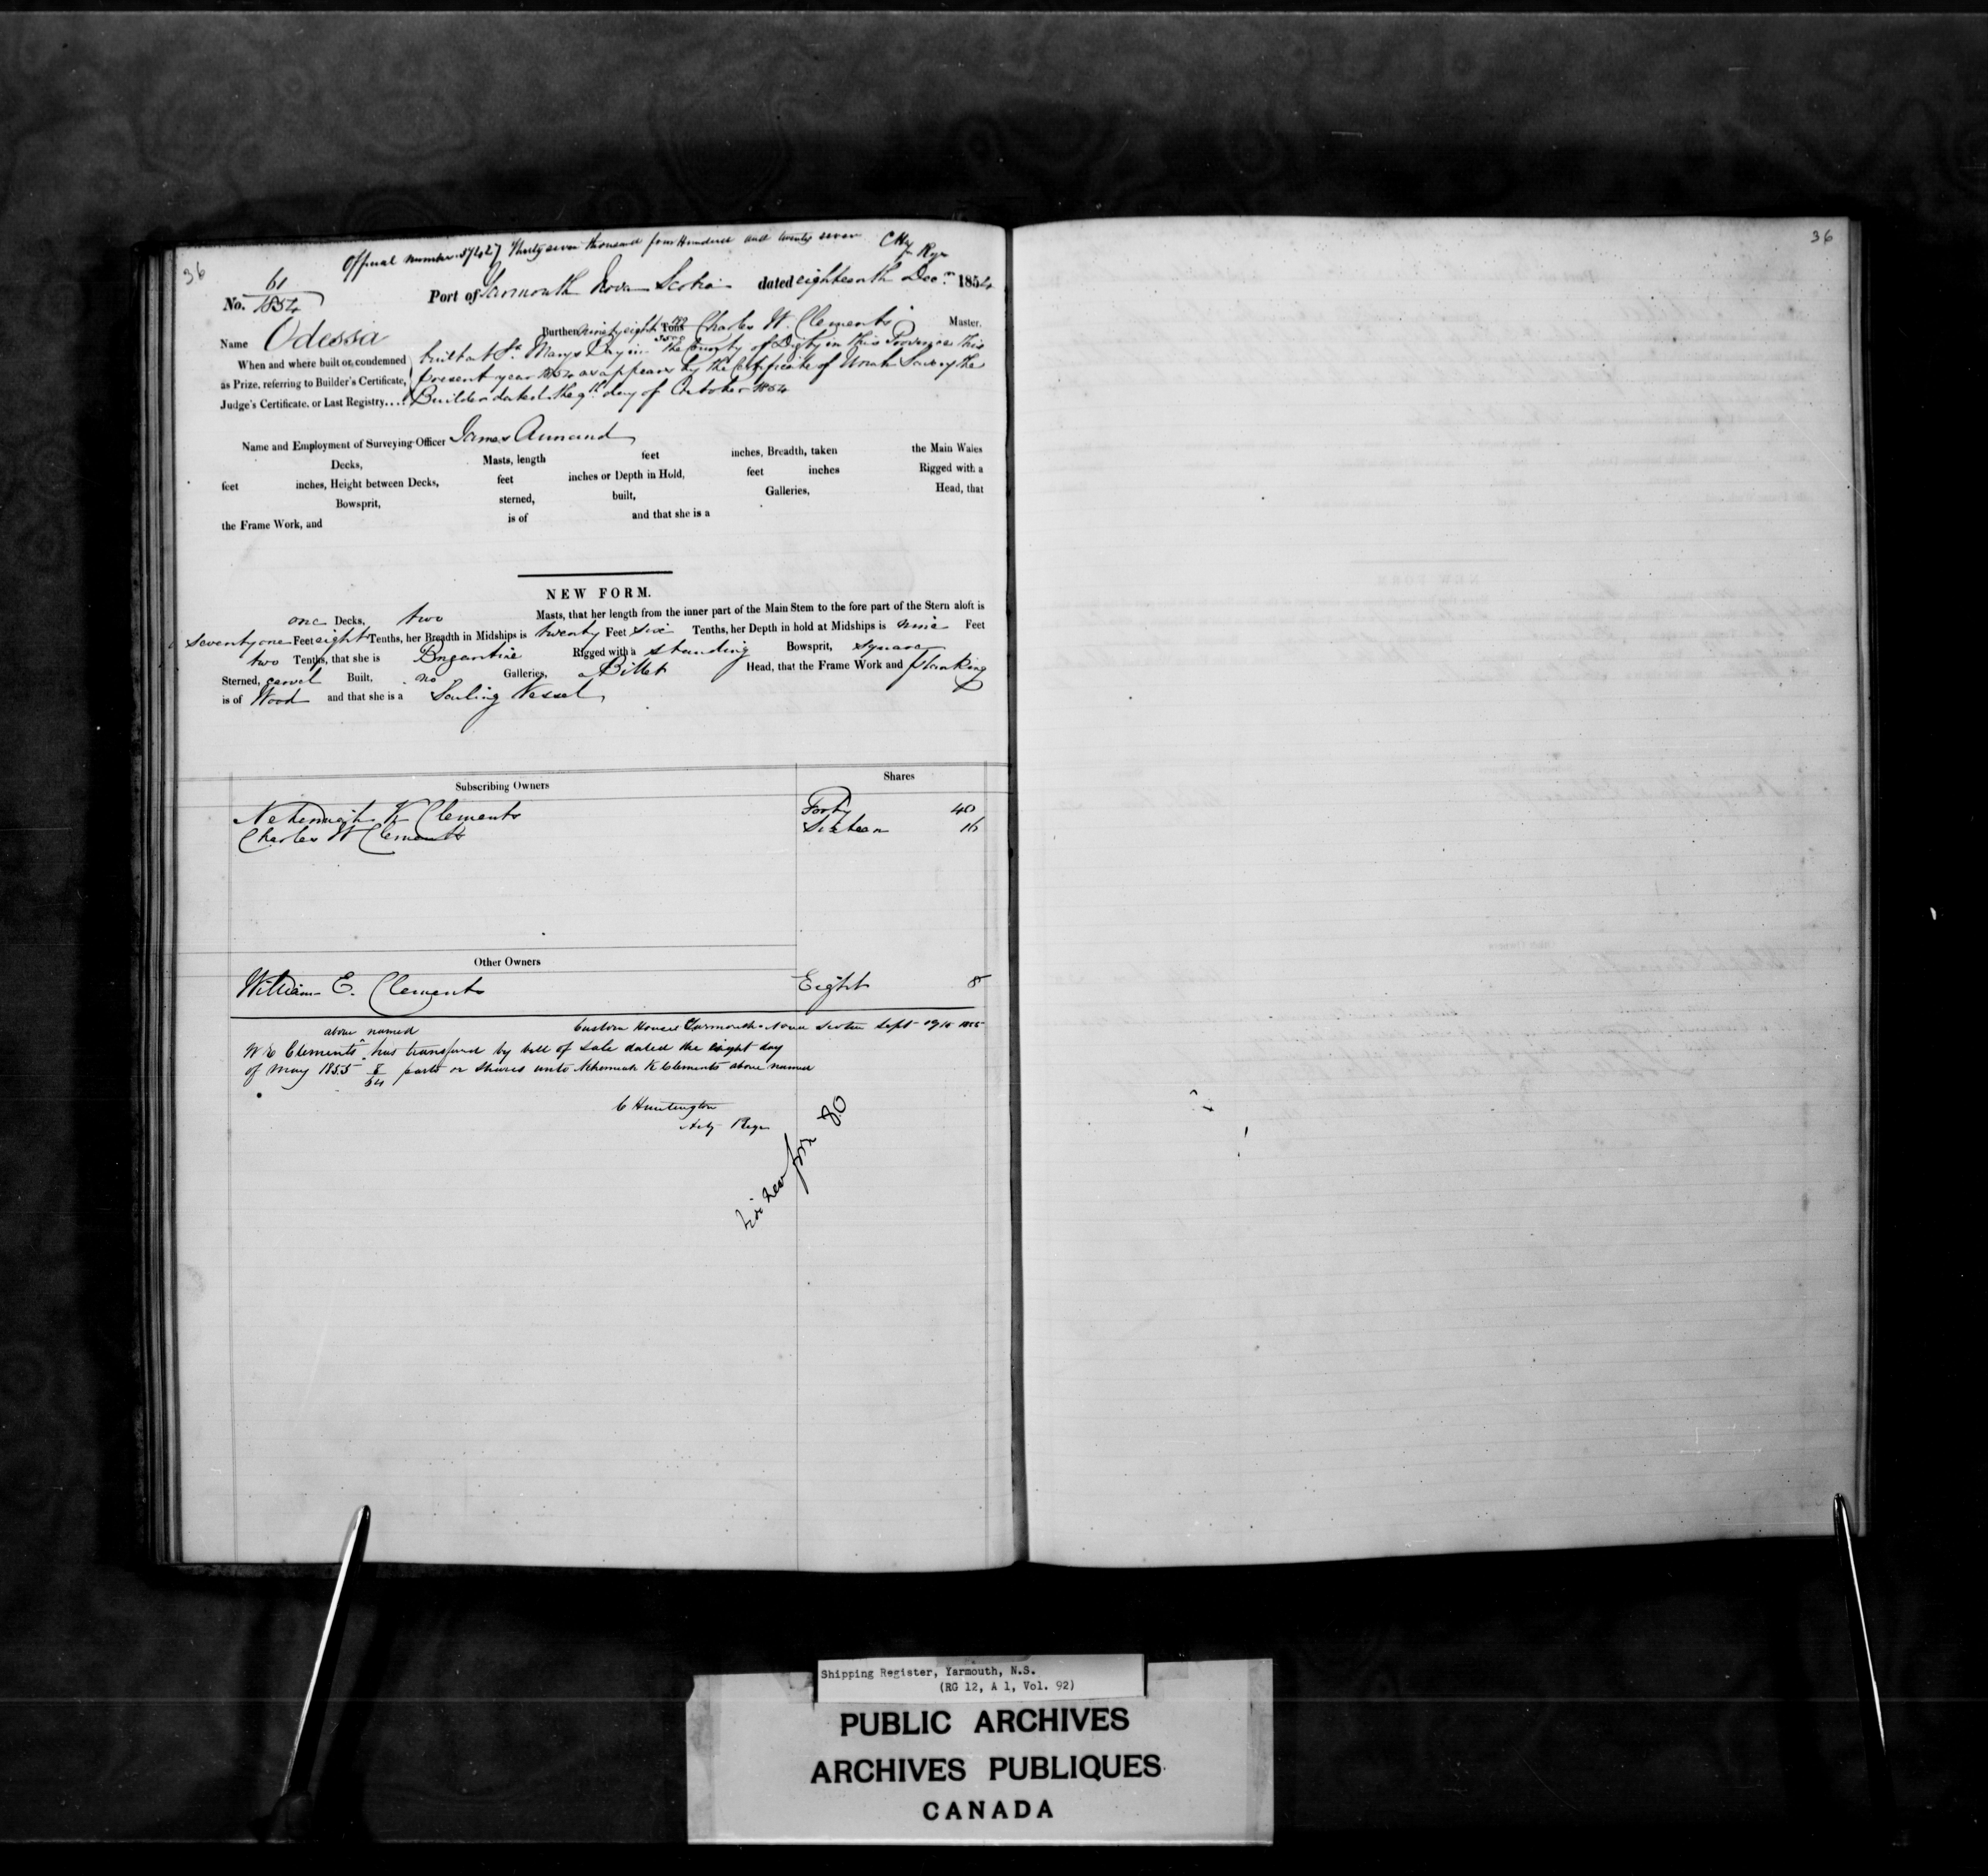 36
Official number 37427 Thirty seven thousand four Hundred and twenty seven
No. 61/1854 Port of Yarmouth Nova Scotia dated eighteenth Decr. 1854
Name Odessa Burthen ninety eight Tons Charles W. Clements Master.
When and where built or condemned as Prize, referring to Builder's Certificate, Judge's Certificate, or Last Registry....
built at St. Marys Bay in the County of Digby in this Province this
present year 1854 as appears by the Certificate of the
Builder dated the 9th day of October 1854
Name and Employment of Surveying Officer James
Decks, Masts, length feet inches, Breadth, taken the Main Wales
feet inches, Height between Decks, feet inches or Depth in Hold, feet inches Rigged with a
Bowsprit, sterned, built, Galleries, Head, that
the Frame Work, and is of and that she is a
NEW FORM.
one Decks, two Masts, that her length from the inner part of the Main Stem to the fore part of the Stern aloft is
seventy one Feet eight Tenths, her Breadth in Midships is twenty Feet six Tenths, her Depth in hold at Midships is nine Feet
two Tenths, that she is Brigantine Rigged with a standing Bowsprit, square
Sterned, carvel Built, no Galleries, a Billet Head, that the Frame Work and planking
is of Wood and that she is a Sailing Vessel
Subscribing Owners Shares
Nehemiah K Clements Forty 40
Charles W Clements Sixteen 16
Other Owners
William E. Clements Eight 8
Custom House Yarmouth Nova Scotia Sept 1855
W E Clements ^above named has transferred by bill of sale dated the eight day
of May 1855 8/64 parts or shares unto Nehemiah K Clements above named
C Huntington
Actg Regr
folio 80
36
Shipping Register, Yarmouth, N.S.
(RG 12, A 1, Vol. 92)
PUBLIC ARCHIVES
ARCHIVES PUBLIQUES
CANADA